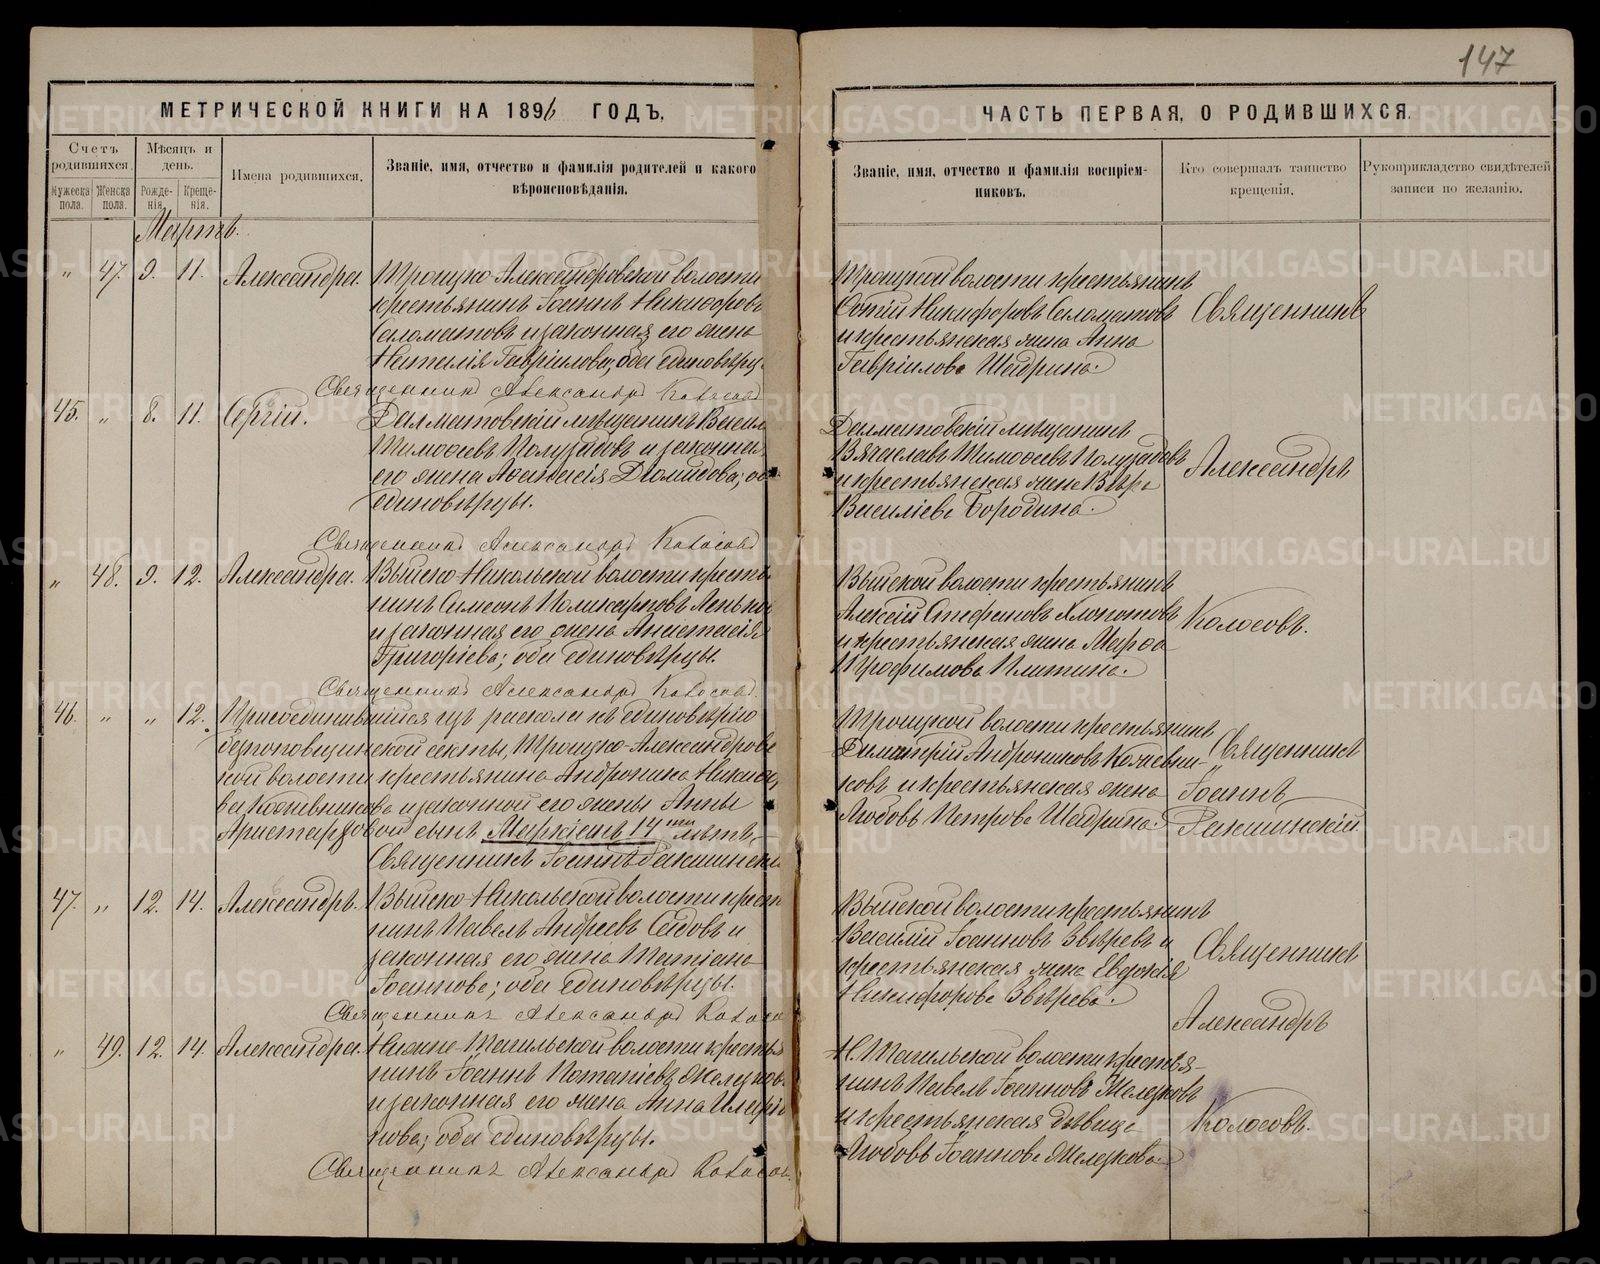 147
МЕТРИЧЕСКОЙ КНИГИ НА 1896 ГОДЪ,
ЧАСТЬ ПЕРВАЯ, О РОДИВШИХСЯ.
Счетъ родившихся.
Мужеска пола.
Женска пола.
Мѣсяцъ и день.
Рожде-нія.
Креще-нія.
Имена родившихся.
Званіе, имя, отчество и фамилія родителей и какого
вѣроисповѣданія.
Званіе, имя, отчество и фамилія воспріем-
никовъ.
Кто совершалъ таинство
крещенія.
Рукоприкладство свидѣтелей
записи по желанію.
Мартъ.
" 47. 9. 11. Александра.
Троицко-Александровской волости
крестьянинъ Іоаннъ Никифоровъ
Саломатовъ и законная его жена
Наталія Гавріилова; оба единовѣрцы
Священникъ Александръ Колосовъ
Троицкой волости крестьянинъ
Фотій Никифоровъ Саломатовъ
и крестьянская жена Анна
Гавріилова Щедрина.
Священникъ
45. " 8. 11. Сергій.
Далматовскій мѣщанинъ
Тимофеевъ Полуздовъ и законная
его жена Афанасія Діомидова; оба
единовѣрцы.
Священникъ Александръ Колосовъ
Далматовскій мѣщанинъ
Вячеславъ Тимофеевъ
и крестьянская жена Вѣра
Василіева Бородина.
Александръ
" 48. 9. 12. Александра.
Выйско-Никольской волости кресть
нинъ Симеонъ Поликарповъ
и законная его жена Анастасія
Григоріева; оба единовѣрцы.
Священникъ Александръ Колосовъ
Выйской волости крестьянинъ
Алексій Стефановъ Хлопотовъ
и крестьянская жена Марфа
Трофимова Плитина.
Колосовъ.
46. " " 12. Присоединившійся изъ раскола къ единовѣрію
безпоповщинской секты, Троицко-Александров
кой волости крестьянина Андроника
и законной его жены Анны
Аристарховой сынъ Маркіанъ 14ти лѣтъ,
Священникъ Іоаннъ
Троицкой волости крестьянинъ
Димитрій Андрониковъ Кожевни-
ковъ и крестьянская жена
Любовь Петрова Щедрина.
Священникъ
Іоаннъ
47. " 12. 14. Александръ.
Выйско-Никольской волости крест
нинъ Павелъ Андреевъ Седовъ и
законная его жена Татіана
Іоаннова; оба единовѣрцы.
Священникъ Александръ Колосо
Выйской волости крестьянинъ
Василій Іоанновъ Звѣревъ и
крестьянская жена Евдокія
Никифорова Звѣрева.
Священникъ
Александръ
" 49. 12. 14. Александра.
Нижне-Тагильской волости кресть
нинъ Іоаннъ Потапіевъ Железков
и законная его жена Анна
нова; оба единовѣрцы.
Священникъ Александръ Колосов
Н. Тагильской волости крестья-
нинъ Павелъ Іоанновъ Железковъ
и крестьянская дѣвица
Любовь Іоаннова Железкова
Колосовъ.
METRIKI.GASO-URAL.RU